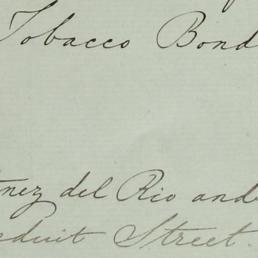 Tobacco Bond
nez del Rio and
duit Street.